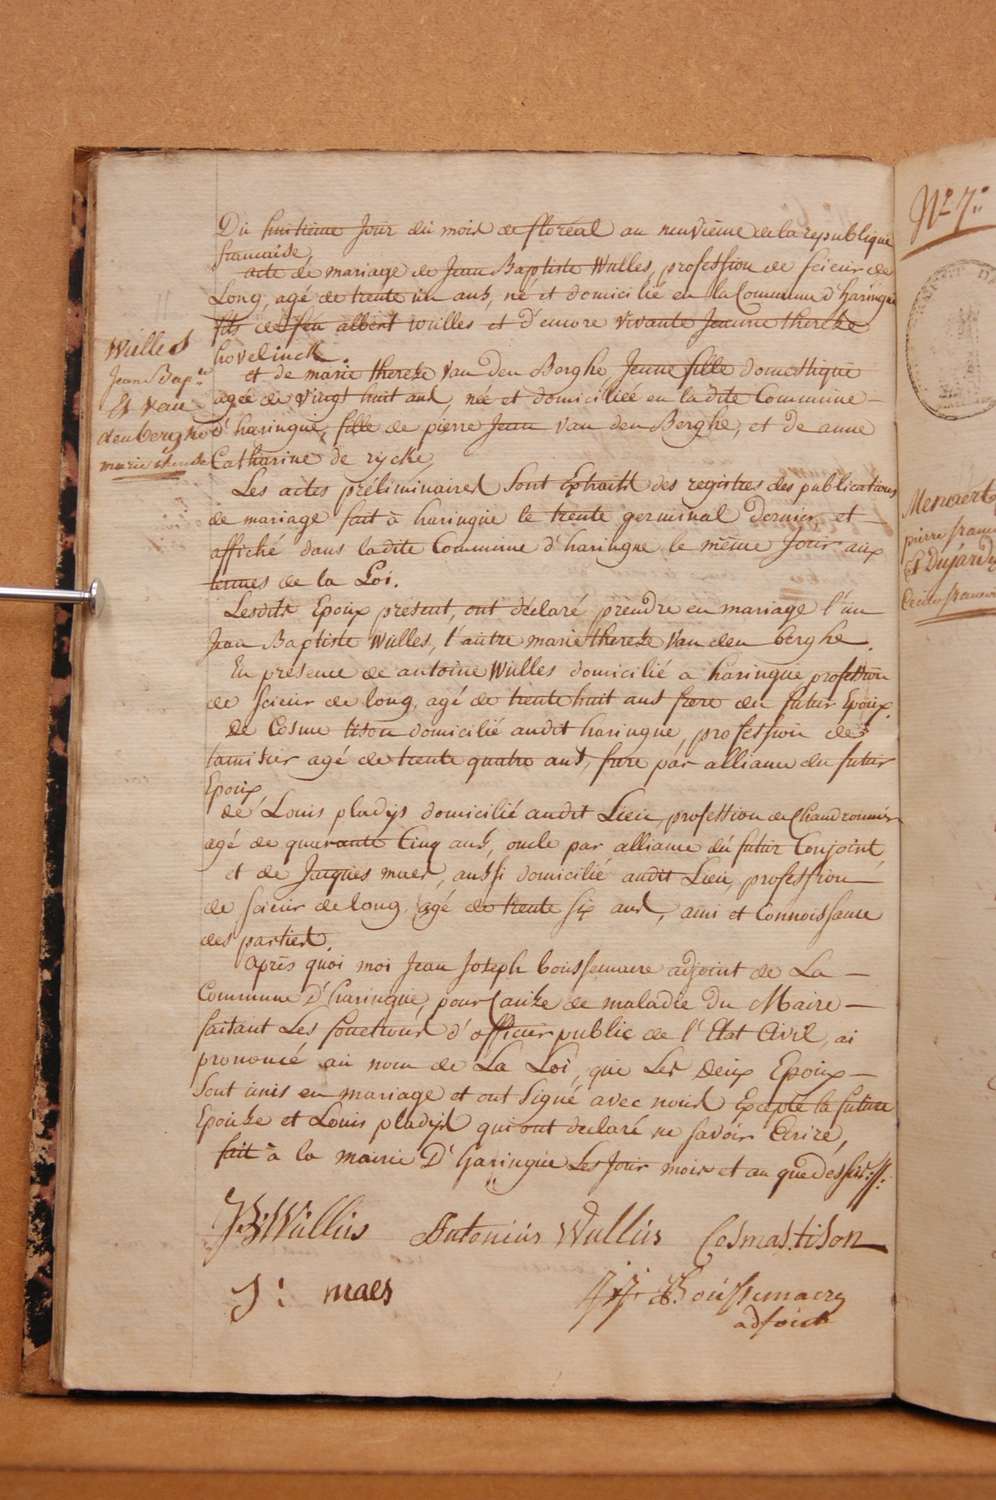 Du huitieme Jour du mois de floréal an neuvieme de la republique
francaise,
acte de mariage de Jean Baptiste Wulles, profession de scieur de
Long, agé de trente un ans, né et domicilié en la Commune d'haringue
fils de feu albert wulles et d'encore vivante Jeanne thereze
hovelinck.
et de marie thereze van den Berghe Jeune fille domestique
agée de vingt huit ans, née et domiciliée en la dite Commune
d'haringue, fille de pierre Jean van den Berghe, et de anne
Catharine de rycke,
Les actes préliminaires sont Extraits des registres des publications
de mariage fait à haringue le trente germinal dernier et
affiché dans ladite Commune d'haringue le même Jour aux
termes de la Loi.
Lesdits Epoux present, ont déclaré prendre en mariage l'un
Jean Baptiste Wulles, l'autre marie thereze van den berghe.
En presence de antoine Wulles domicilié a haringue profession
de scieur de long, agé de trente huit ans frere du futur Epoux.
de Cosme tison domicilié audit haringue, profession de
tamisier agé de trente quatre ans, frere par alliance du futur
Epoux
de Louis pladys domicilié audit Lieu, profession de Chaudronnier
agé de quarante Cinq ans, oncle par alliance du futur Conjoint,
et de Jacques maes, aussi domicilié audit Lieu, profession
de scieur de long, agé de trente six ans, ami et Connoissance
des parties.
Après quoi moi Jean Joseph boussemaere adjoint de La
Commune D'haringue, pour Cauze de maladie du Maire
faisant Les fonctions d'officier public de l'Etat Civil, ai
prononcé au nom de La Loi, que Les deux Epoux
sont unis en mariage et ont signé avec nous Excepté la future
Epouze et Louis pladys qui ont declaré ne savoir Ecrire,
fait à la mairie D'haringue Les Jour mois et an que dessus.
J:B: Wullus Antonius Wullus Cosmas tison
J: maes J: J: Boussemaere
adjoint
Wulles
Jean Bap.te
Et van
den berghe
marie thereze
No. 7.
Menaert
pierre francois
Et Dujardin